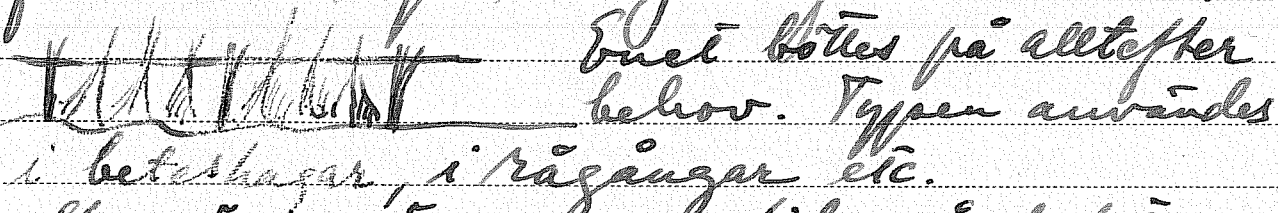 Enet böttes på alltefter
behov. Typen användes
i beteshagar, i rågångar etc.